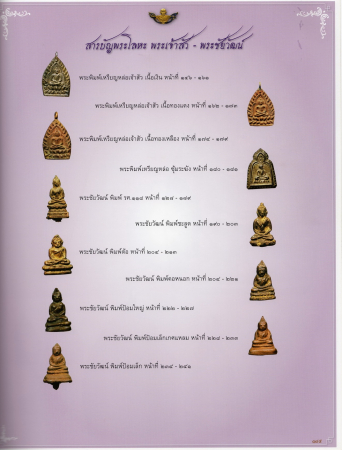 สารบัญพระโลหะ พระเจ้าสัว - พระชัยวัฒน์
พระพิมพ์เหรียญหล่อเจ้าสัว เนื้อเงิน หน้าที่ ๑๔๖ - ๑๖๑
พระพิมพ์เหรียญหล่อเจ้าสัว เนื้อทองแดง หน้าที่ ๑๖๒ - ๑๗๓
พระพิมพ์เหรียญหล่อเจ้าสัว เนื้อทองเหลือง หน้าที่ ๑๗๔ - ๑๗๙
พระพิมพ์เหรียญหล่อ ซุ้มระฆัง หน้าที่ ๑๘๐ - ๑๘๑
พระชัยวัฒน์ พิมพ์ รศ.๑๑๘ หน้าที่ - ๑๘๙
พระชัยวัฒน์ พิมพ์ชะลูด หน้าที่ ๑๙๐ - ๒๐๓
พระชัยวัฒน์ พิมพ์ต้อ หน้าที่ ๒๐๔ - ๒๑๓
พระชัยวัฒน์ พิมพ์ตอหนอก หน้าที่ - ๒๒๑
พระชัยวัฒน์ พิมพ์ป้อมใหญ่ หน้าที่ ๒๒๒ - ๒๒๗
พระชัยวัฒน์ พิมพ์ป้อมเล็กเกศแหลม หน้าที่ ๒๒๘ - ๒๓๓
พระชัยวัฒน์ พิมพ์ป้อมเล็ก หน้าที่ ๒๓๔ - ๒๔๑